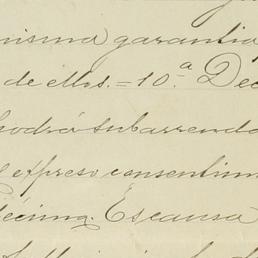 misma garantia
de ellos. = 10.a Dec
podrá subarrenda
expreso consentim
décima. Es causa